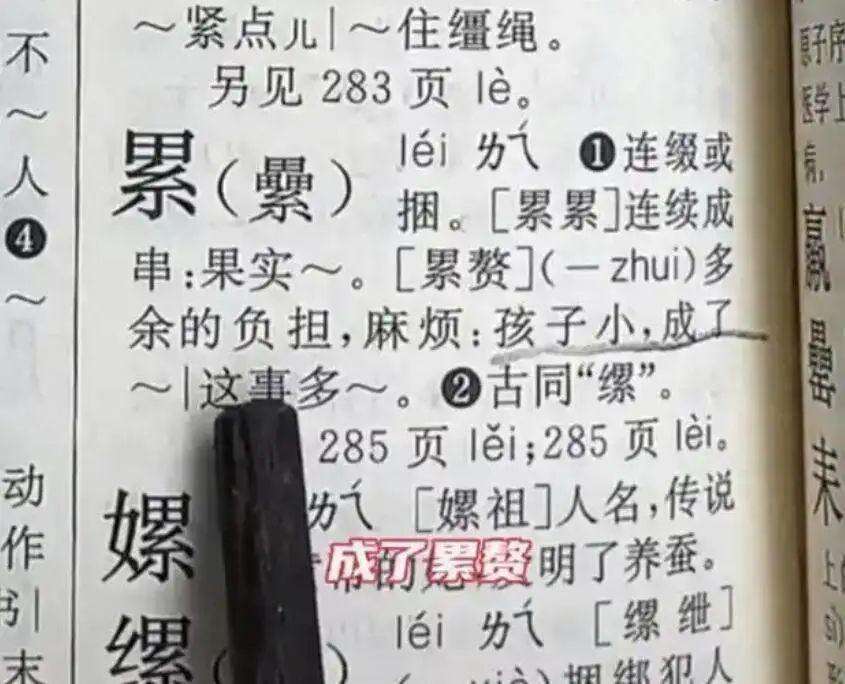 ～紧点儿|～住缰绳。
另见 283 页 lè。
累(纍) léi ㄌㄟˊ ❶连缀或
捆。[累累]连续成
串:果实～。[累赘](－zhui)多
余的负担,麻烦:孩子小,成了
～|这事多～。❷古同“缧”。
285 页 lěi;285 页 lèi。
嫘 ㄌㄟˊ [嫘祖]人名,传说
明了养蚕。
成了累赘
缧 léi ㄌㄟˊ [缧绁]
捆绑犯人
不
～
人
❹
～
动
作
书|
末
原子序
医学上
病,
羸
罍
耒
上的